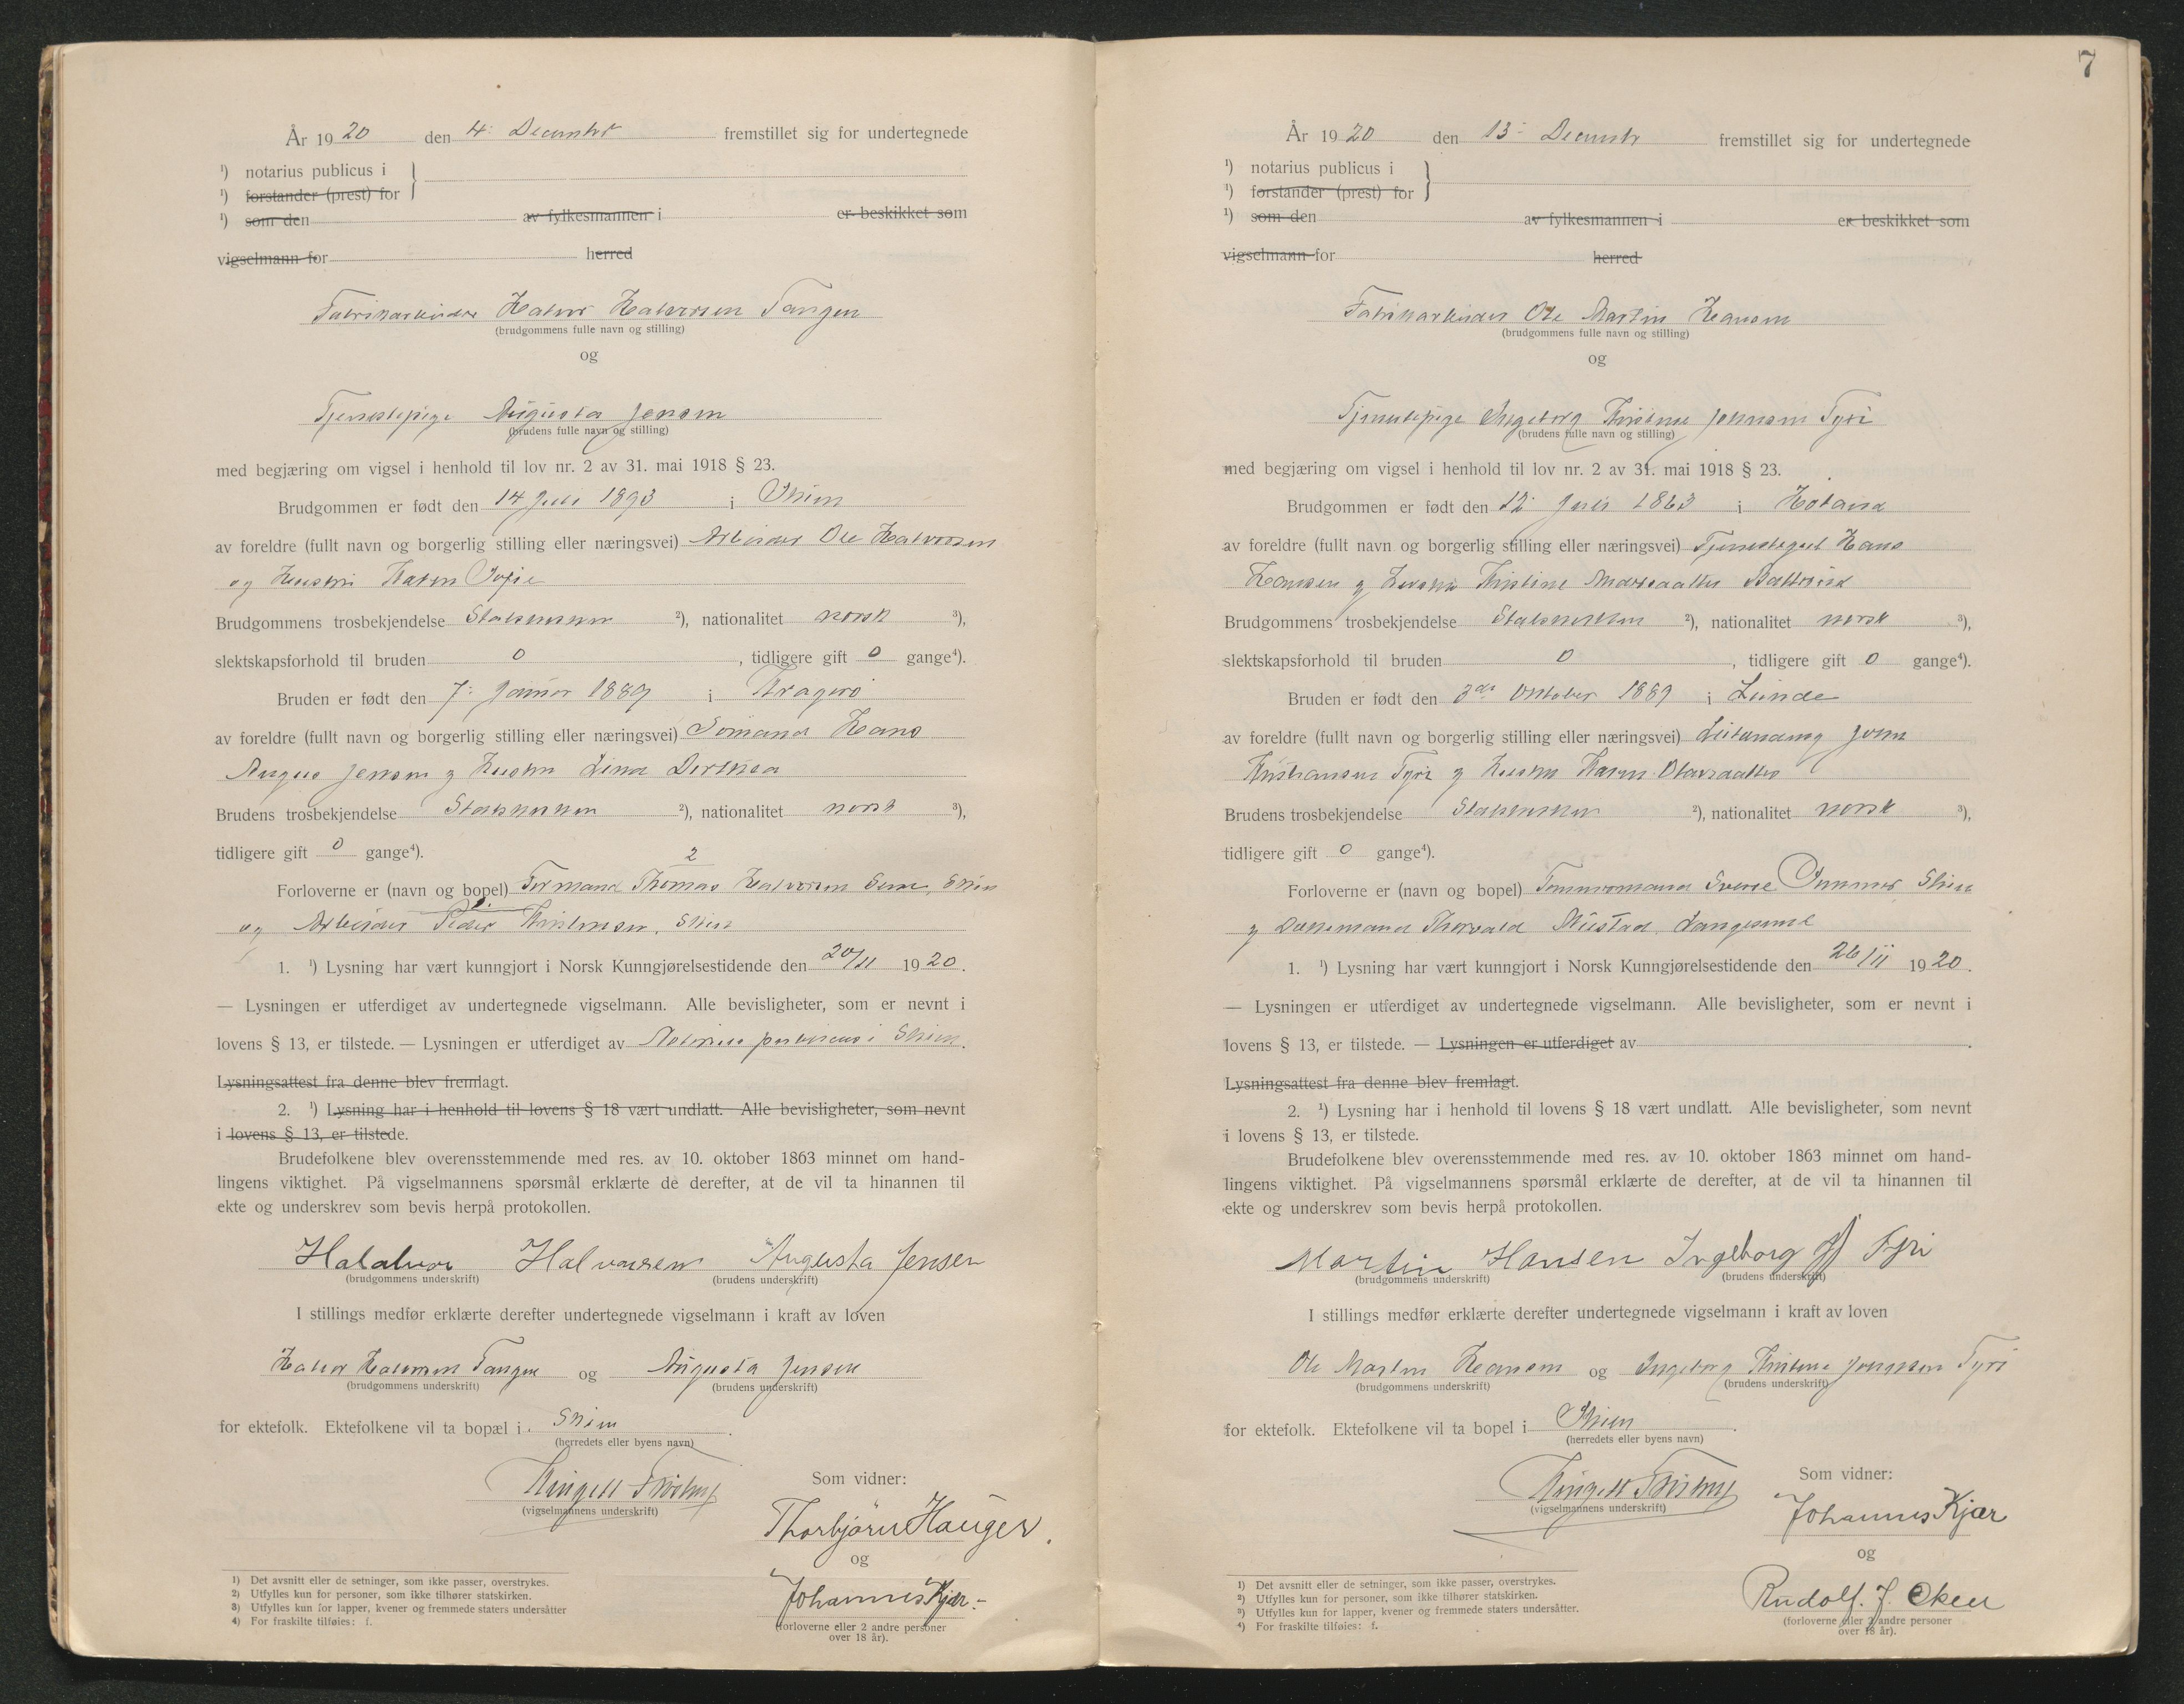 År 1920 den 4. December fremstillet sig for undertegnede
¹) notarius publicus i
¹) forstander (prest) for
¹) som den av fylkesmannen i er beskikket som
vigselmann for herred
Fabrikarbeider Halvor Halvorsen Tangen
(brudgommens fulle navn og stilling)
og
Tjenestepige Augusta Jensen
(brudens fulle navn og stilling)
med begjæring om vigsel i henhold til lov nr. 2 av 31. mai 1918 § 23.
Brudgommen er født den 14 Juli 1893 i Skien
av foreldre (fullt navn og borgerlig stilling eller næringsvei) Arbeider Ole Halvorsen
og Hustru Karen Sofie
Brudgommens trosbekjendelse Statskirken ²), nationalitet norsk ³),
slektskapsforhold til bruden 0, tidligere gift 0 gange⁴).
Bruden er født den 7. Januar 1889 i Kragerö
av foreldre (fullt navn og borgerlig stilling eller næringsvei) Sömand Hans
August Jensen og Hustru Lina
Brudens trosbekjendelse Statskirken ²), nationalitet norsk ³),
tidligere gift 0 gange⁴).
2
Forloverne er (navn og bopel) Formand Thomas Halvorsen Skien
og Arbeider Peder Kristensen, Skien
1. ¹) Lysning har vært kunngjort i Norsk Kunngjørelsestidende den 20/11 1920.
— Lysningen er utferdiget av undertegnede vigselmann. Alle bevisligheter, som er nevnt i
lovens § 13, er tilstede. — Lysningen er utferdiget av Notarius publicus i Skien.
Lysningsattest fra denne blev fremlagt.
2. ¹) Lysning har i henhold til lovens § 18 vært undlatt. Alle bevisligheter, som nevnt
i lovens § 13, er tilstede.
Brudefolkene blev overensstemmende med res. av 10. oktober 1863 minnet om hand-
lingens viktighet. På vigselmannens spørsmål erklærte de derefter, at de vil ta hinannen til
ekte og underskrev som bevis herpå protokollen.
Halalvor Halvorsen Augusta Jensen
(brudgommens underskrift) (brudens underskrift)
I stillings medfør erklærte derefter undertegnede vigselmann i kraft av loven
Halvor Halvorsen Tangen og Augusta Jensen
(brudgommens underskrift) (brudens underskrift)
for ektefolk. Ektefolkene vil ta bopæl i Skien.
(herredets eller byens navn)
(vigselmannens underskrift)
Som vidner:
Thorbjørn Hauger.
og
Johannes Kjær.
(forloverne eller 2 andre personer
over 18 år).
1) Det avsnitt eller de setninger, som ikke passer, overstrykes.
2) Utfylles kun for personer, som ikke tilhører statskirken.
3) Utfylles kun for lapper, kvener og fremmede staters undersåtter
4) For fraskilte tilføies: f.
7
År 1920 den 13. Decembr fremstillet sig for undertegnede
¹) notarius publicus i
¹) forstander (prest) for
¹) som den av fylkesmannen i er beskikket som
vigselmann for herred
Fabrikarbeider Ole Martin Hansen
(brudgommens fulle navn og stilling)
og
Tjenestepige Ingeborg Kristine Johnsen Tyri
(brudens fulle navn og stilling)
med begjæring om vigsel i henhold til lov nr. 2 av 31. mai 1918 § 23.
Brudgommen er født den 12. Juli 1863 i Höland
av foreldre (fullt navn og borgerlig stilling eller næringsvei) Tjenestegut Hans
Hansen og Hustru Kristine Andersdatter
Brudgommens trosbekjendelse Statskirken ²), nationalitet norsk ³),
slektskapsforhold til bruden 0, tidligere gift 0 gange⁴).
Bruden er født den 3die Oktober 1889 i Lunde
av foreldre (fullt navn og borgerlig stilling eller næringsvei) John
Kristiansen Tyri og Hustru Karen Olavsdatter
Brudens trosbekjendelse Statskirken ²), nationalitet norsk ³),
tidligere gift 0 gange⁴).
Forloverne er (navn og bopel) Tömmermand Sverre Gunnar Skien
og Thorvald Langesund
1. ¹) Lysning har vært kunngjort i Norsk Kunngjørelsestidende den 26/11 1920.
— Lysningen er utferdiget av undertegnede vigselmann. Alle bevisligheter, som er nevnt i
lovens § 13, er tilstede. — Lysningen er utferdiget av
Lysningsattest fra denne blev fremlagt.
2. ¹) Lysning har i henhold til lovens § 18 vært undlatt. Alle bevisligheter, som nevnt
i lovens § 13, er tilstede.
Brudefolkene blev overensstemmende med res. av 10. oktober 1863 minnet om hand-
lingens viktighet. På vigselmannens spørsmål erklærte de derefter, at de vil ta hinannen til
ekte og underskrev som bevis herpå protokollen.
Martin Hansen Ingeborg J Tyri
(brudgommens underskrift) (brudens underskrift)
I stillings medfør erklærte derefter undertegnede vigselmann i kraft av loven
Ole Martin Hansen og Ingeborg Kristine Johnsen Tyri
(brudgommens underskrift) (brudens underskrift)
for ektefolk. Ektefolkene vil ta bopel i Skien.
(herredets eller byens navn)
(vigselmannens underskrift)
Som vidner:
Johannes Kjær
og
Rudolf. J. Oken
(forloverne eller 2 andre personer
over 18 år).
1) Det avsnitt eller de setninger, som ikke passer, overstrykes.
2) Utfylles kun for personer, som ikke tilhører statskirken.
3) Utfylles kun for lapper, kvener og fremmede staters undersåtter.
4) For fraskilte tilføies: f.